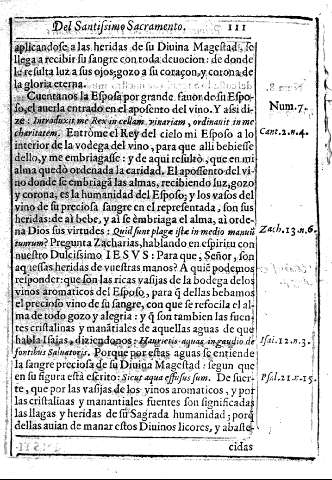 Del Santissimo Sacramento. 111
aplicandose a las heridas de su Diuina Magestad, se
llega a recibir su sangre con toda deuocion: de donde
le resulta luz a sus ojos; gozo a su coraçon, y corona de
la gloria eterna.
Cuentanos la Esposa por grande fauor de su Espo-
so, el auerla entrado en el aposento del vino. Y assi di-
ze: Introduxit me Rex in cellam vinariam, ordinauit in me
charitatem. Entròme el Rey del cielo mi Esposo a lo
interior de la vodega del vino, para que alli bebiesse
dello, y me embriagasse: y de aqui resultò, que en mi
alma quedò ordenada la caridad. El aposento del vi-
no donde se embriagã las almas, recibiendo luz, gozo
y corona, es la humanidad del Esposo, y los vasos del
vino de su preciosa sangre en el representada, son sus
heridas: de aì bebe, y aì se embriaga el alma, aì orde-
na Dios sus virtudes: Quid sunt plagæ istæ in medio manuũ
tuarum? Pregunta Zacharias, hablando en espiritu con
nuestro Dulcissimo IESVS: Para que, Señor, son
aquessas heridas de vuestras manos? A quiẽ podemos
responder: que son las ricas vasijas de la bodega delos
vinos aromaticos del Esposo, para q̃ dellas bebamos
el precioso vino de su sangre, con que se refocila el al-
ma de todo gozo y alegria: y q̃ son tambien las fuen-
tes cristalinas y manãtiales de aquellas aguas de que
habla Isaias, diziendonos: Haurietis aquas in gaudio de
fontibus Saluatoris. Porque por estas aguas se entiende
la sangre preciosa de su Diuina Magestad: segun que
en su figura està escrito: Sicut aqua effusus sum. De suer-
te, que por las vasijas de los vinos aromaticos, y por
las cristalinas y manantiales fuentes son significadas
las llagas y heridas de su Sagrada humanidad; porq̃
dellas auian de manar estos Diuinos licores, y abaste-
cidas
Num. 7.
Cant. 2. n. 4.
Zach. 13. n. 6.
Isai. 12. n. 3.
Psal. 21. n. 15.